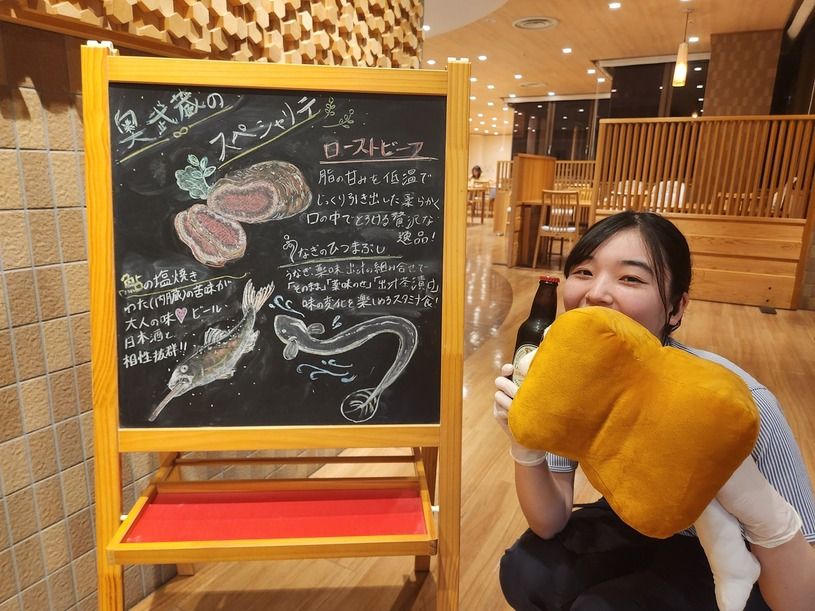 奥武蔵の
スペシャリテ
ローストビーフ
脂の甘みを低温で
じっくり引き出した柔らかく
口の中でとろける贅沢な
逸品!
うなぎのひつまぶし
うなぎ、薬味、出汁の組み合せで
「そのまま」「薬味のせ」「出汁茶漬け」
味の変化を楽しめるスタミナ食!
鮎の塩焼き
わた(内臓)の苦味が
大人の味♥ビール
日本酒と
相性抜群!!